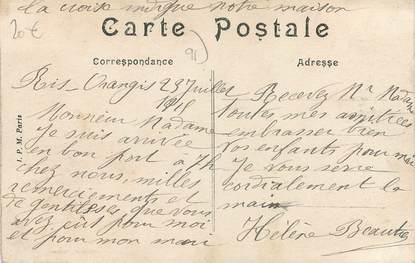 la croix indique notre maison
20€
91
Carte Postale
Correspondance
Adresse
I. P. M. Paris
Ris-Orangis 23 Juillet
1915
Monsieur Madame
Je suis arrivée
en bon port à 7h
chez nous, milles
remerciements et
de gentileses que vous
avez eut pour moi
et pour mon mari
Recevez Mr Madame
toutes mes amitiées
embrasser bien
vos enfants pour moi
Je vous serre
cordialement la
main
Hélène